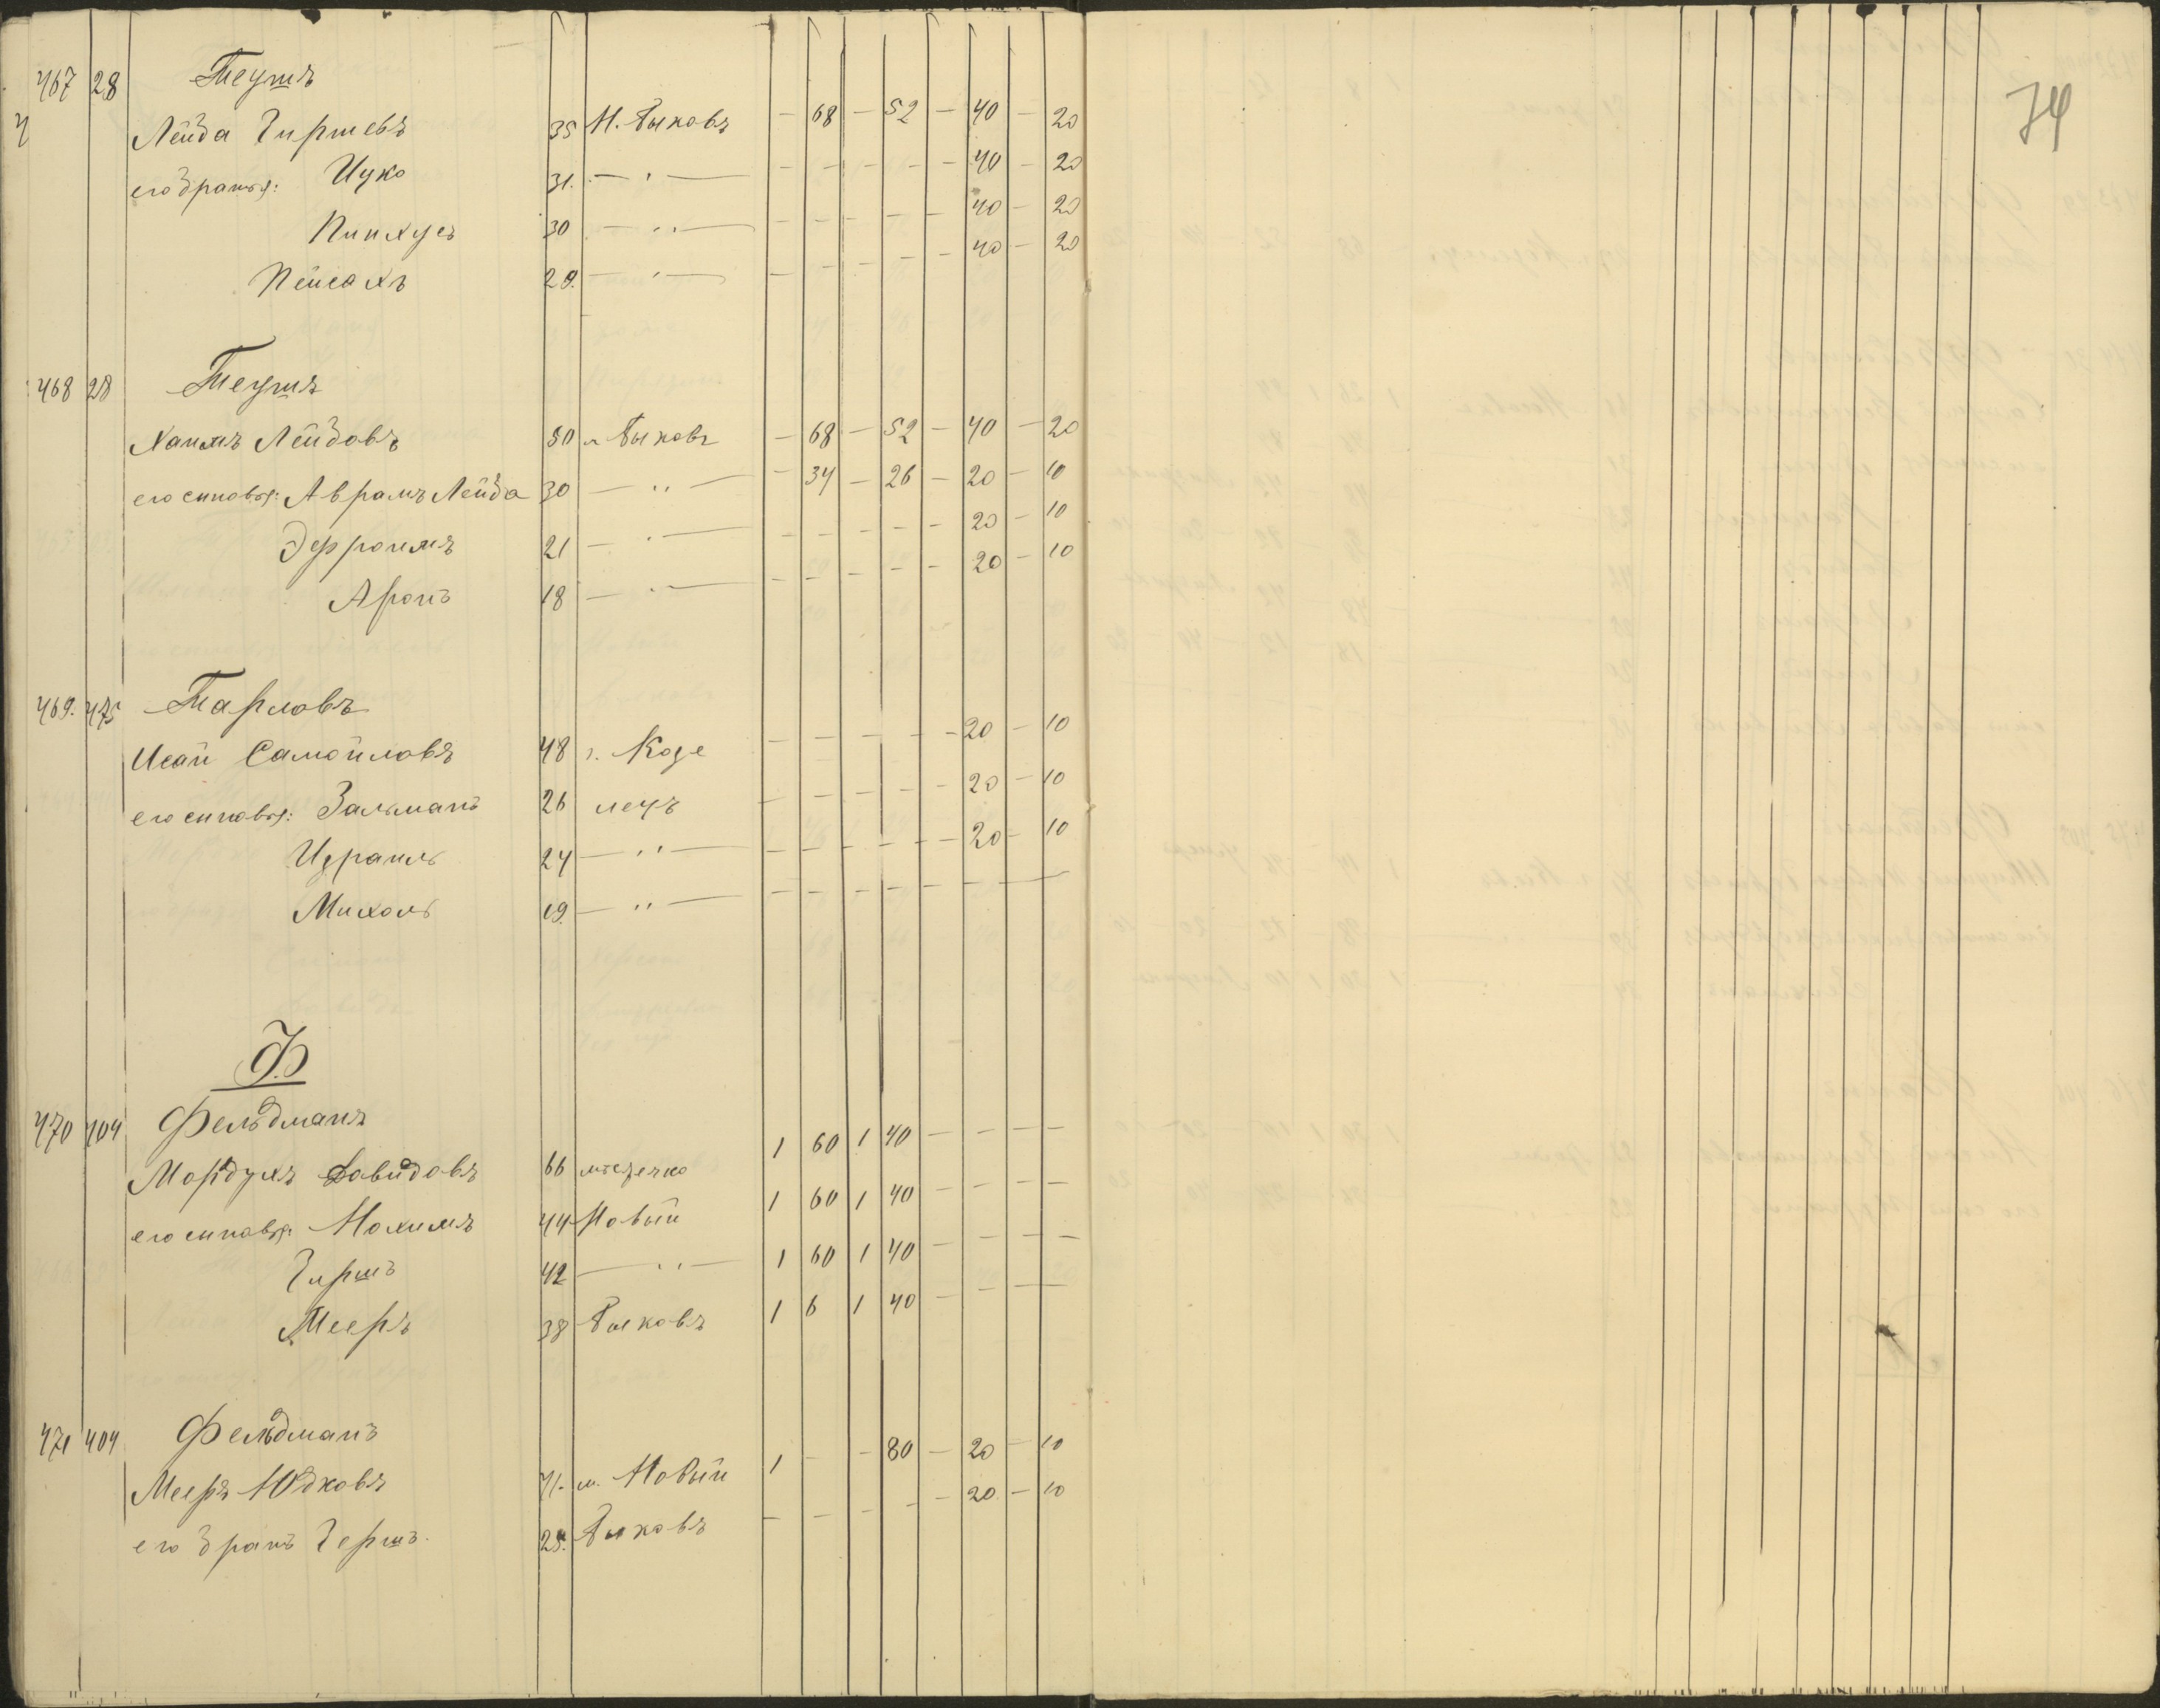 74
467 28 Теушъ
Лейба Гиршовъ 35 Н. Быховъ — 68 — 52 — 40 — 20
его братья: Ицко 31. — " — — — — — — 40 — 20
Пинхусъ 30 — " — — — — — — 40 — 20
Пейсахъ 29. — " — — — — — — 40 — 20
468 28 Теушъ
Хаимъ Лейбовъ 50 м Быховъ — 68 — 52 — 40 — 20
его сыновья: Аврамъ Лейба 30 — " — — 34 — 26 — 20 — 10
Эфроимъ 21 — " — — — — — — 20 — 10
Аронъ 18 — " — — — — — — 20 — 10
469. 475 Тарловъ
Исай Самойловъ 48 г. Козе — — — — — 20 — 10
его сыновья: Залманъ 26 лецъ — — — — — 20 — 10
Израиль 24 — " — — — — — — 20 — 10
Михель 19. — " — — — — — — — —
Ф
470 404 Фельдманъ
Мордухъ Давидовъ 66 мѣстечко 1 60 1 40 — — — —
его сыновья: Нохимъ 44 Новый 1 60 1 40 — — — —
Гиршъ 42 — " — 1 60 1 40 — — — —
Мееръ 38 Быховъ 1 6 1 40 — — — —
471 404 Фельдманъ
Мееръ Юдковъ 41. м. Новый 1 — — 80 — 20 — 10
его братъ Гершъ. Быховъ — — — — — 20 — 10